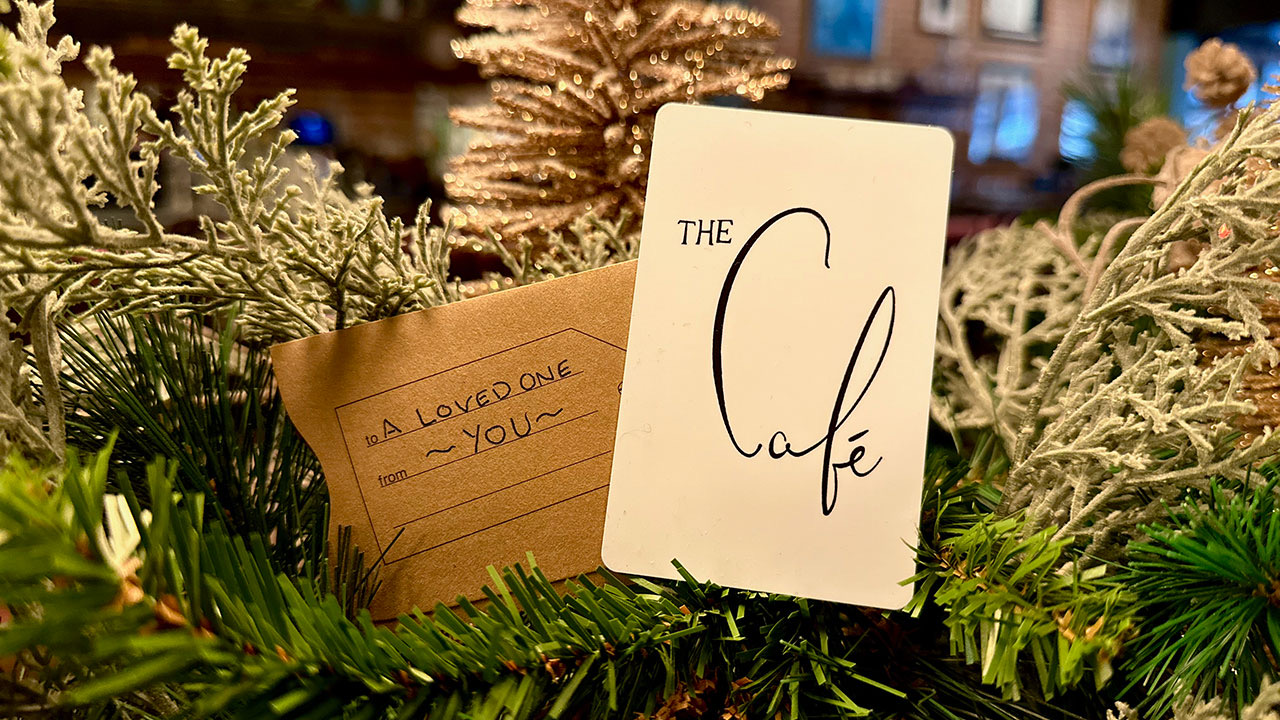 THE
Café
to A LOVED ONE
from ~YOU~